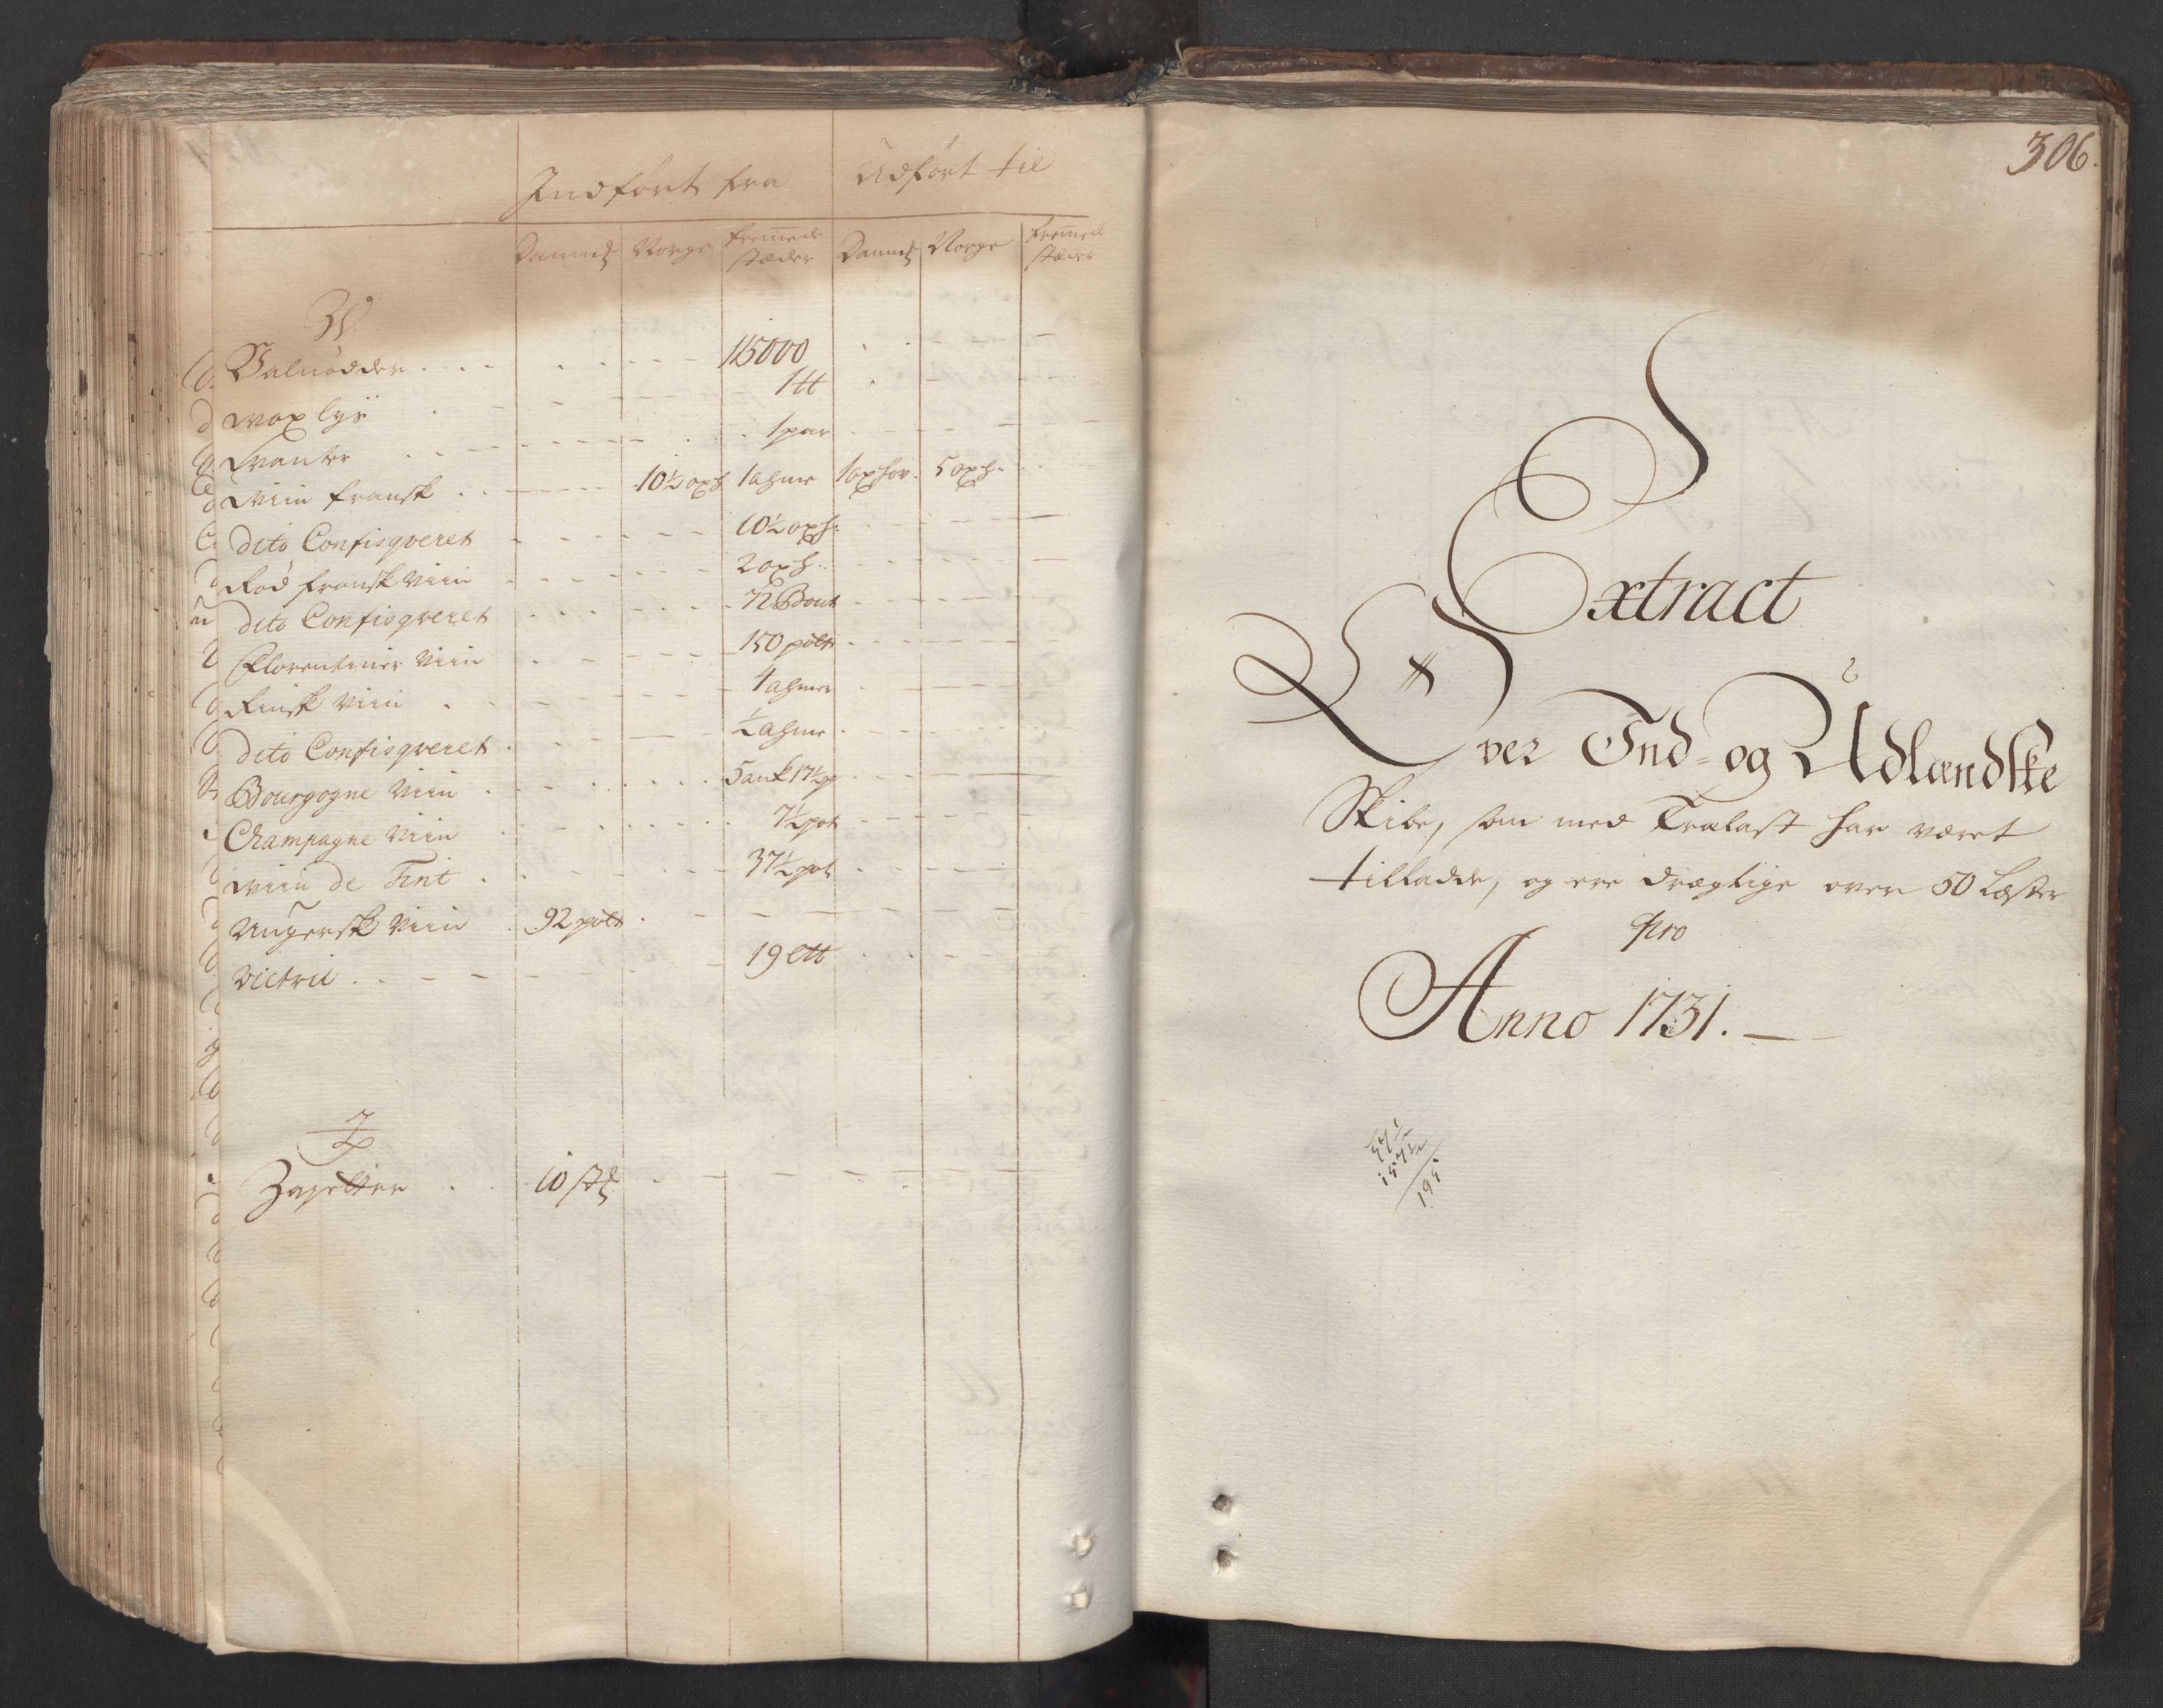 Indført fra Udført til
Danmk Norge fremmede stæder Danmk Norge fremmede stæder
W
Valnødder 115000
wax lys 1 tt
wanter 1 par
wiin fransk 10½ oxh 1 ahme 1 oxhov. 5 oxh:
dito Confisqveret 10½ oxh:
Rød fransk Viin 2 oxh:
dito Confisqveret 72 Bout
Florentiner Viin 150 pott
Rinsk Viin 4 ahmer
dito Confisqveret ½ ahme
Bourgogne Viin 5 ank 17½ p
Champagne Viin 7½ pot
wiin de Tint 37½ pot
Ungersk Viin 92 pott
Victril 19 Ltt
Z
10 stk
306.
Extract
Over Ind- og Udlændske
Skibe, som med Tralast har været
tilladde, og ere drægtige over 50 Læster
pro
Anno 1731.
195